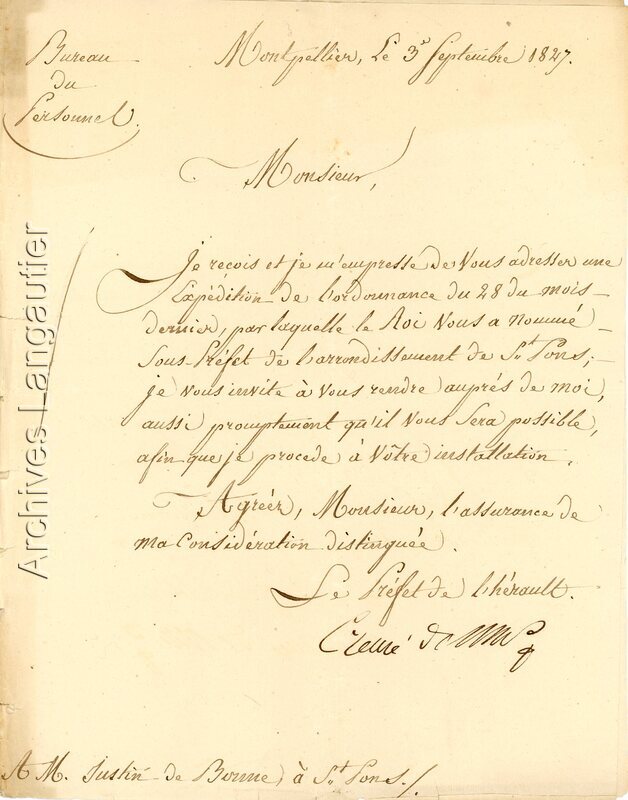 Bureau
du
Personnel.
Montpellier, Le 3 Septembre 1827.
Monsieur,
Je reçois et je m'empresse de Vous adresser une
Expédition de l'ordonnance du 28 du mois
dernier, par laquelle le Roi Vous a nommé
Sous-Préfet de l'arrondissement de St. Pons;
je vous invite à Vous rendre auprés de moi,
aussi promptement qu'il Vous Sera possible,
afin que je procede à Vôtre installation.
Agréér, Monsieur, l'assurance de
ma Considération distinguée.
Le Préfet de l'hérault.
Creuzé de
A M. Justin de Bonne, à St. Pons./.
Archives Langautier